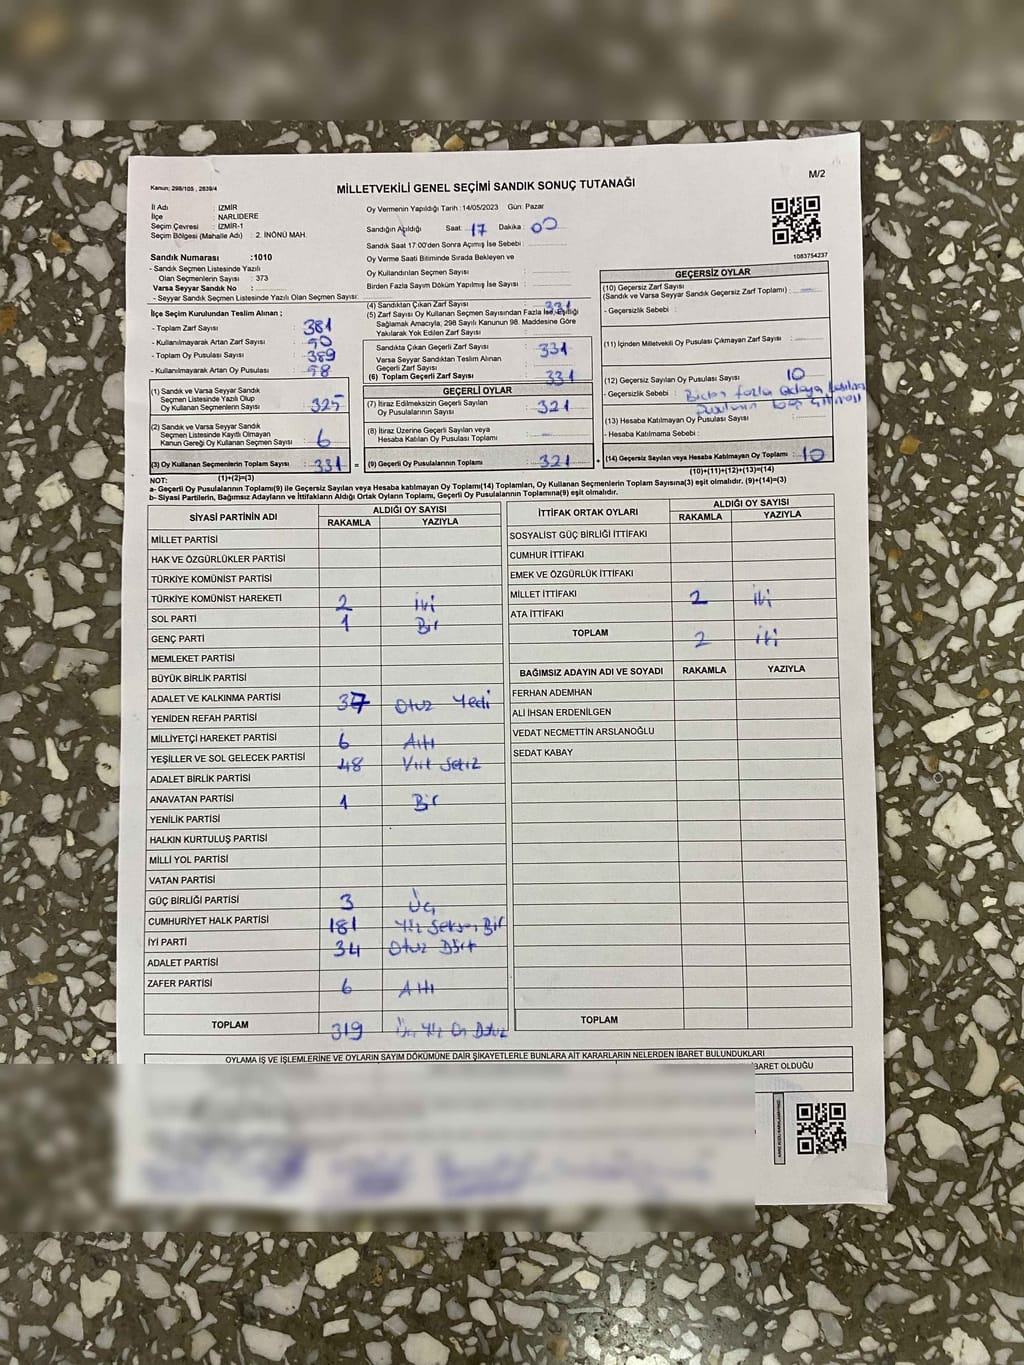 M/2
Kanun; 298/105 , 2839/4
MİLLETVEKİLİ GENEL SEÇİMİ SANDIK SONUÇ TUTANAĞI
İl Adı : İZMİR
İlçe : NARLIDERE
Seçim Çevresi : İZMİR-1
Seçim Bölgesi (Mahalle Adı) : 2. İNÖNÜ MAH.
Oy Vermenin Yapıldığı Tarih :14/05/2023 Gün: Pazar
Sandığın Açıldığı Saat : 17 Dakika : 00
Sandık Saat 17:00'den Sonra Açımış İse Sebebi :
Oy Verme Saati Bitiminde Sırada Bekleyen ve
Oy Kullandırılan Seçmen Sayısı :
Birden Fazla Sayım Döküm Yapılmış İse Sayısı :
1083754237
Sandık Numarası :1010
- Sandık Seçmen Listesinde Yazılı
Olan Seçmenlerin Sayısı : 373
Varsa Seyyar Sandık No :
- Seyyar Sandık Seçmen Listesinde Yazılı Olan Seçmen Sayısı:
İlçe Seçim Kurulundan Teslim Alınan ;
- Toplam Zarf Sayısı : 381
- Kullanılmayarak Artan Zarf Sayısı : 50
- Toplam Oy Pusulası Sayısı : 389
- Kullanılmayarak Artan Oy Pusulası : 58
(1) Sandık ve Varsa Seyyar Sandık
Seçmen Listesinde Yazılı Olup
Oy Kullanan Seçmenlerin Sayısı : 325
(2) Sandık ve Varsa Seyyar Sandık
Seçmen Listesinde Kayıtlı Olmayan
Kanun Gereği Oy Kullanan Seçmen Sayısı : 6
(3) Oy Kullanan Seçmenlerin Toplam Sayısı : 331
(1)+(2)=(3)
(4) Sandıktan Çıkan Zarf Sayısı : 331
(5) Zarf Sayısı Oy Kullanan Seçmen Sayısından Fazla İse, Eşitliği
Sağlamak Amacıyla, 298 Sayılı Kanunun 98. Maddesine Göre
Yakılarak Yok Edilen Zarf Sayısı :
Sandıkta Çıkan Geçerli Zarf Sayısı : 331
Varsa Seyyar Sandıktan Teslim Alınan
Geçerli Zarf Sayısı :
(6) Toplam Geçerli Zarf Sayısı : 331
GEÇERLİ OYLAR
(7) İtiraz Edilmeksizin Geçerli Sayılan
Oy Pusulalarının Sayısı : 321
(8) İtiraz Üzerine Geçerli Sayılan veya
Hesaba Katılan Oy Pusulası Toplamı : —
= (9) Geçerli Oy Pusulalarının Toplamı : 321
GEÇERSİZ OYLAR
(10) Geçersiz Zarf Sayısı
(Sandık ve Varsa Seyyar Sandık Geçersiz Zarf Toplamı) : —
- Geçersizlik Sebebi :
(11) İçinden Milletvekili Oy Pusulası Çıkmayan Zarf Sayısı :
(12) Geçersiz Sayılan Oy Pusulası Sayısı : 10
- Geçersizlik Sebebi : Birden fazla
(13) Hesaba Katılmayan Oy Pusulası Sayısı :
- Hesaba Katılmama Sebebi :
+ (14) Geçersiz Sayılan veya Hesaba Katılmayan Oy Toplamı : 10
(10)+(11)+(12)+(13)=(14)
NOT:
a- Geçerli Oy Pusulalarının Toplamı(9) ile Geçersiz Sayılan veya Hesaba katılmayan Oy Toplamı(14) Toplamları, Oy Kullanan Seçmenlerin Toplam Sayısına(3) eşit olmalıdır. (9)+(14)=(3)
b- Siyasi Partilerin, Bağımsız Adayların ve İttifakların Aldığı Ortak Oyların Toplamı, Geçerli Oy Pusulalarının Toplamına(9) eşit olmalıdır.
SİYASİ PARTİNİN ADI ALDIĞI OY SAYISI
RAKAMLA YAZIYLA
MİLLET PARTİSİ
HAK VE ÖZGÜRLÜKLER PARTİSİ
TÜRKİYE KOMÜNİST PARTİSİ
TÜRKİYE KOMÜNİST HAREKETİ 2 iki
SOL PARTİ 1 Bir
GENÇ PARTİ
MEMLEKET PARTİSİ
BÜYÜK BİRLİK PARTİSİ
ADALET VE KALKINMA PARTİSİ 37 Otuz Yedi
YENİDEN REFAH PARTİSİ
MİLLİYETÇİ HAREKET PARTİSİ 6 Altı
YEŞİLLER VE SOL GELECEK PARTİSİ 48 Kırk Sekiz
ADALET BİRLİK PARTİSİ
ANAVATAN PARTİSİ 1 Bir
YENİLİK PARTİSİ
HALKIN KURTULUŞ PARTİSİ
MİLLİ YOL PARTİSİ
VATAN PARTİSİ
GÜÇ BİRLİĞİ PARTİSİ 3 Üç
CUMHURİYET HALK PARTİSİ 181 Yüz Seksen Bir
İYİ PARTİ 34 Otuz Dört
ADALET PARTİSİ
ZAFER PARTİSİ 6 Altı
TOPLAM 319 Üç Yüz On Dokuz
İTTİFAK ORTAK OYLARI ALDIĞI OY SAYISI
RAKAMLA YAZIYLA
SOSYALİST GÜÇ BİRLİĞİ İTTİFAKI
CUMHUR İTTİFAKI
EMEK VE ÖZGÜRLÜK İTTİFAKI
MİLLET İTTİFAKI 2 iki
ATA İTTİFAKI
TOPLAM 2 iki
BAĞIMSIZ ADAYIN ADI VE SOYADI RAKAMLA YAZIYLA
FERHAN ADEMHAN
ALİ İHSAN ERDENİLGEN
VEDAT NECMETTİN ARSLANOĞLU
SEDAT KABAY
TOPLAM
OYLAMA İŞ VE İŞLEMLERİNE VE OYLARIN SAYIM DÖKÜMÜNE DAİR ŞİKAYETLERLE BUNLARA AİT KARARLARIN NELERDEN İBARET BULUNDUKLARI
İBARET OLDUĞU